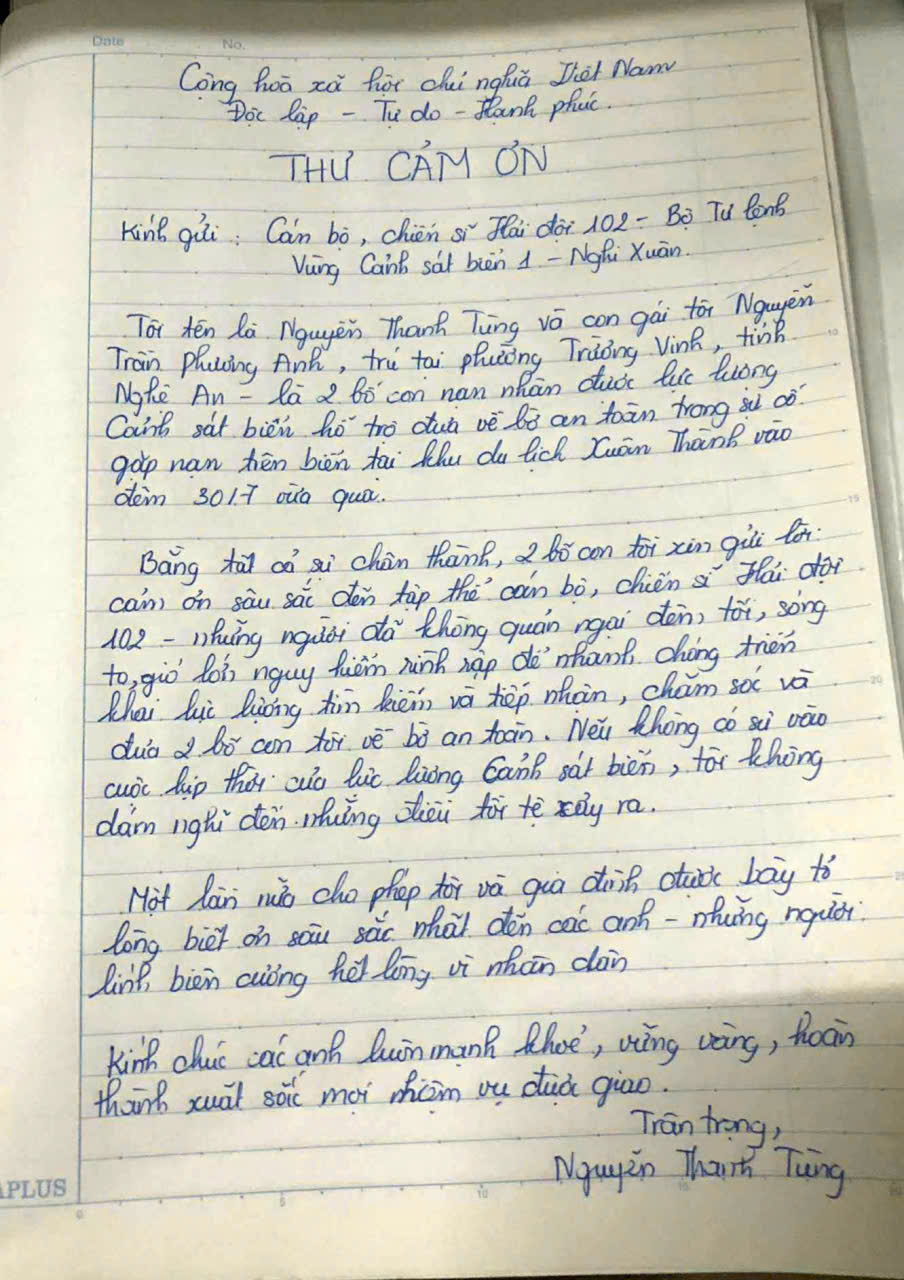 Date No.
Cộng hoà xã hội chủ nghĩa Việt Nam
Độc lập - Tự do - Hạnh phúc.
THƯ CẢM ƠN
Kính gửi : Cán bộ, chiến sĩ Hải đội 102 - Bộ Tư lệnh
Vùng Cảnh sát biển 1 - Nghi Xuân.
Tôi tên là Nguyễn Thanh Tùng và con gái tôi Nguyễn
Trần Phương Anh, trú tại phường Trường Vinh, tỉnh
Nghệ An - là 2 bố con nạn nhân được lực lượng
Cảnh sát biển hỗ trợ đưa về bờ an toàn trong sự cố
gặp nạn trên biển tại khu du lịch Xuân Thành vào
đêm 30/7 vừa qua.
Bằng tất cả sự chân thành, 2 bố con tôi xin gửi lời
cảm ơn sâu sắc đến tập thể cán bộ, chiến sĩ Hải đội
102 - những người đã không quản ngại đêm tối, sóng
to, gió lớn nguy hiểm rình rập để nhanh chóng triển
khai lực lượng tìm kiếm và tiếp nhận, chăm sóc và
đưa 2 bố con tôi về bờ an toàn. Nếu không có sự vào
cuộc kịp thời của lực lượng Cảnh sát biển, tôi không
dám nghĩ đến những điều tồi tệ xảy ra.
Một lần nữa cho phép tôi và gia đình được bày tỏ
lòng biết ơn sâu sắc nhất đến các anh - những người
lính biên cương hết lòng vì nhân dân
Kính chúc các anh luôn mạnh khoẻ, vững vàng, hoàn
thành xuất sắc mọi nhiệm vụ được giao.
Trân trọng,
Nguyễn Thanh Tùng
APLUS